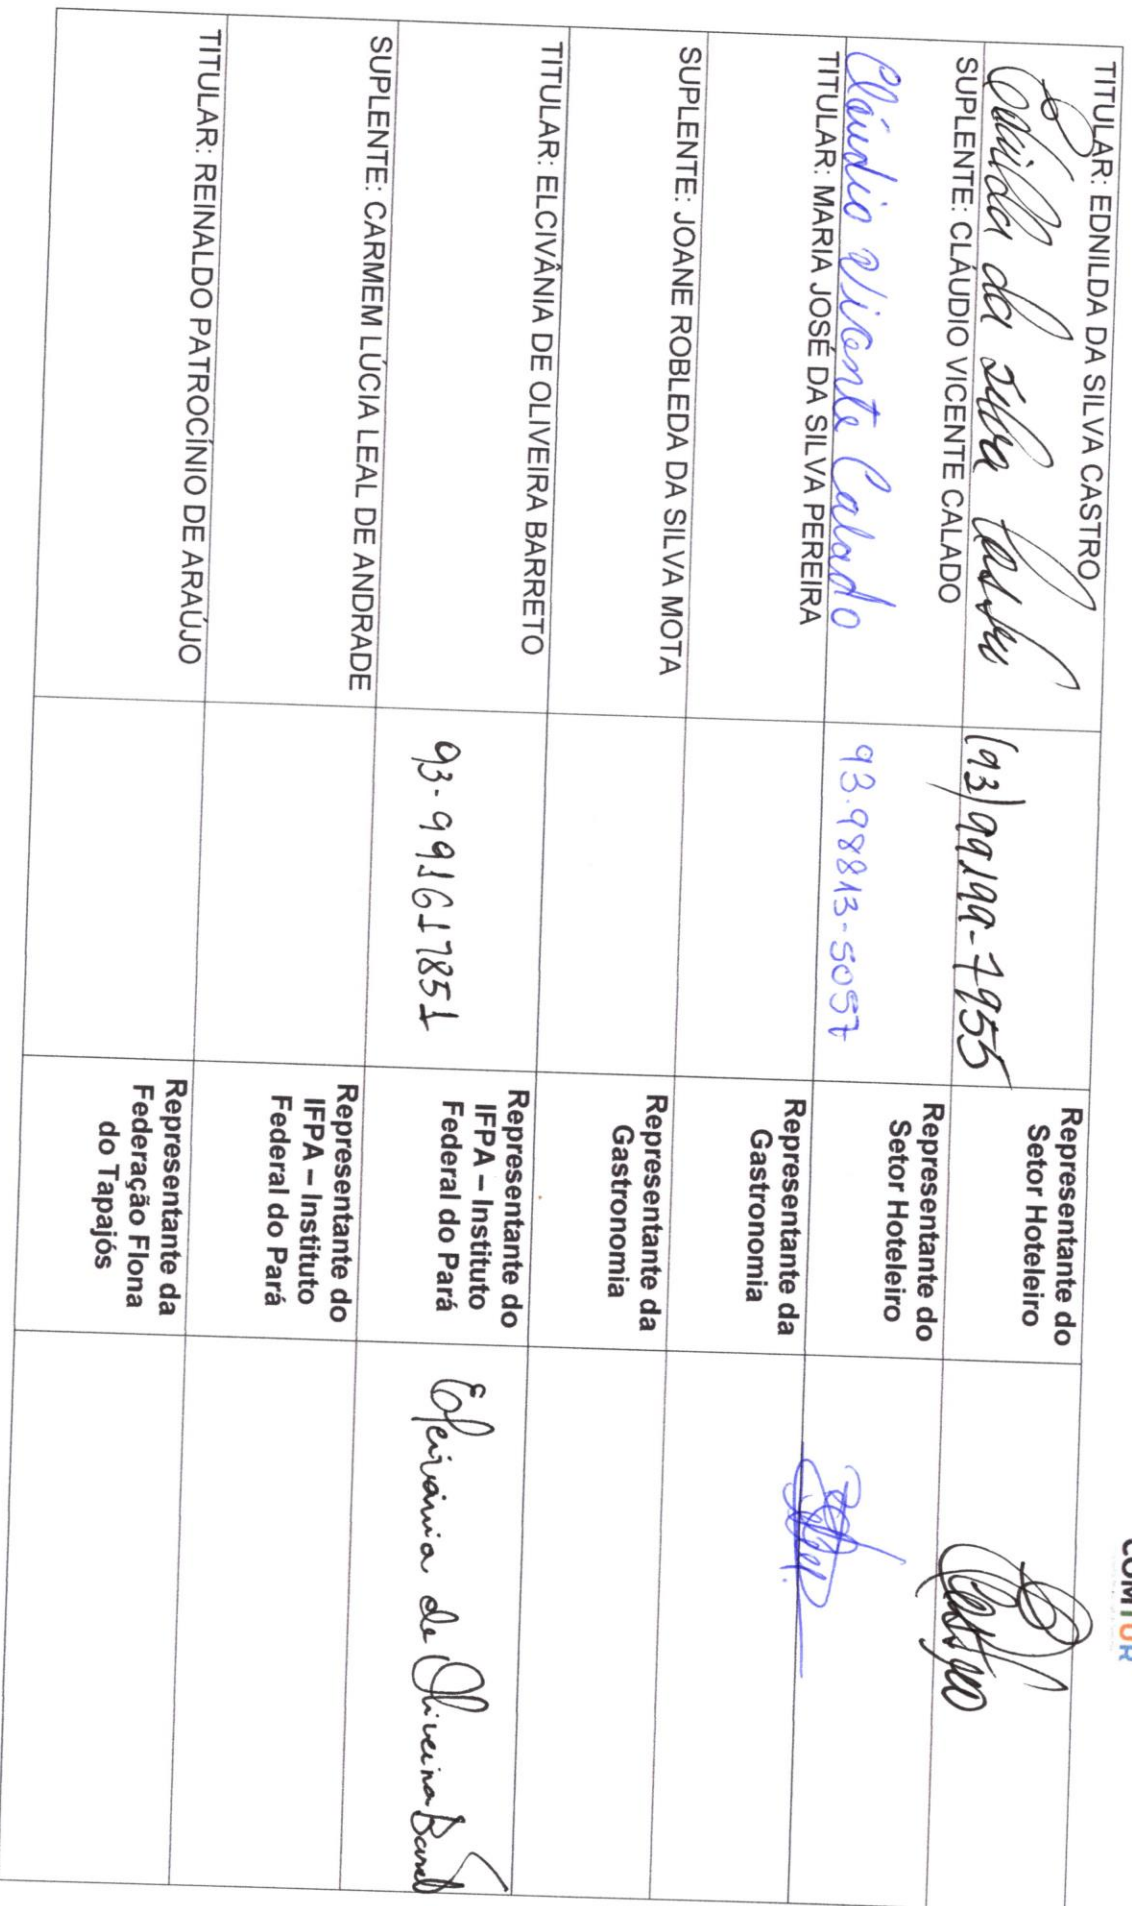 COMTUR
TITULAR: EDNILDA DA SILVA CASTRO
Ednilda da Silva Castro
(93) 99199-7955
Representante do
Setor Hoteleiro
Castro
SUPLENTE: CLÁUDIO VICENTE CALADO
Cláudio Vicente Calado
93.98813-5057
Representante do
Setor Hoteleiro
TITULAR: MARIA JOSÉ DA SILVA PEREIRA
Representante da
Gastronomia
SUPLENTE: JOANE ROBLEDA DA SILVA MOTA
Representante da
Gastronomia
TITULAR: ELCIVÂNIA DE OLIVEIRA BARRETO
93-991617851
Representante do
IFPA – Instituto
Federal do Pará
Elcivânia de Oliveira Barreto
SUPLENTE: CARMEM LÚCIA LEAL DE ANDRADE
Representante do
IFPA – Instituto
Federal do Pará
TITULAR: REINALDO PATROCÍNIO DE ARAÚJO
Representante da
Federação Flona
do Tapajós